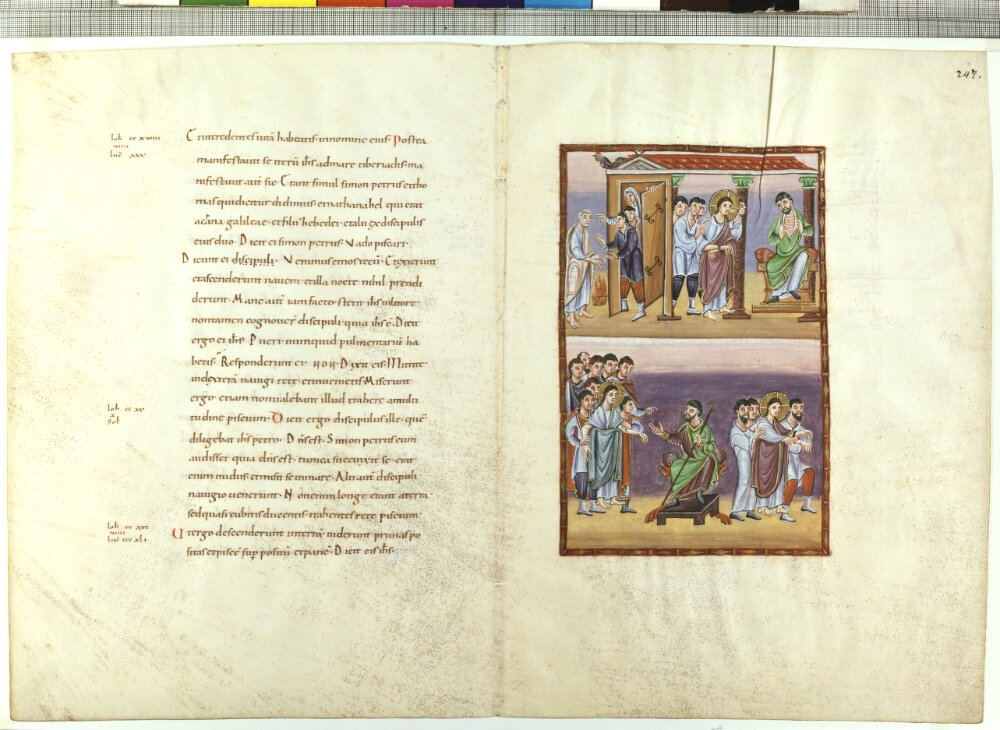 Et ut credentes uitā habeatis innomine eius. Postea
manifestauit se iterū ihs admare tiberiadis. ma
nifestauit autē sic. Erant simul simon petrus et tho
mas qui dicitur didimus. et nathanahel qui erat
acana galileae. et filii zebedei. et alii ex discipulis
eius duo. Dicit ei simon petrus. Vado piscari.
Dicunt ei discipuli. Venimus et nos tecū. Et exierunt
et ascenderunt nauem. et illa nocte nihil prendi
derunt. Mane autē iam facto. stetit ihs inlitore.
nontamen cognouer̄ discipuli quia ihs ē. Dicit
ergo ei ihs. Pueri numquid pulmentariū ha
betis. Responderunt ei. NON. Dixit eis. Mittite
indexterā nauigii rete. et inuenietis. Miserunt
ergo. et iam nonualebant illud trahere amulti
tudine piscium. Dicit ergo discipulus ille. quē
diligebat ihs petro. Dn̄s est. Simon petrus cum
audisset quia dn̄s est. tunica succinxit se. erat
enim nudus et misit se inmare. Alii autē discipuli
nauigio uenerunt. Non enim longe erant aterra
sed quasi cubitis ducentis. trahentes rete piscium.
Ut ergo descenderunt interrā. uiderunt prunas po
sitas et piscē sup̄ positū et panē. Dicit eis ihs.
247.